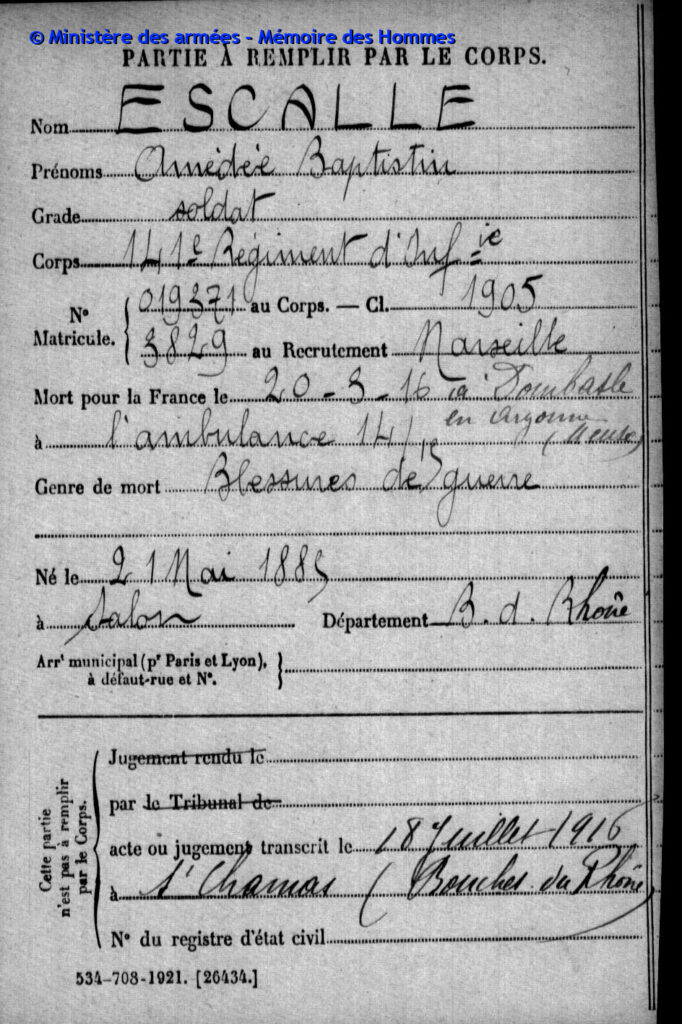 © Ministère des armées - Mémoire des Hommes
PARTIE À REMPLIR PAR LE CORPS.
Nom ESCALLE
Prénoms Amédée Baptistin
Grade soldat
Corps 141e Régiment d'Infie
N° Matricule. { 019371 au Corps. — Cl. 1905
3829 au Recrutement Marseille
Mort pour la France le 20-3-16 à Dombasle
en Argonne (Meuse)
à l'ambulance 14/15
Genre de mort Blessures de guerre
Né le 21 Mai 1885
à Salon Département B. d. Rhône
Arrt municipal (pr Paris et Lyon), }
à défaut-rue et N°.
Cette partie n'est pas à remplir par le Corps.
Jugement rendu le
par le Tribunal de
acte ou jugement transcrit le 18 Juillet 1916
à St Chamas (Bouches du Rhône)
N° du registre d'état civil
534-708-1921. [26434.]